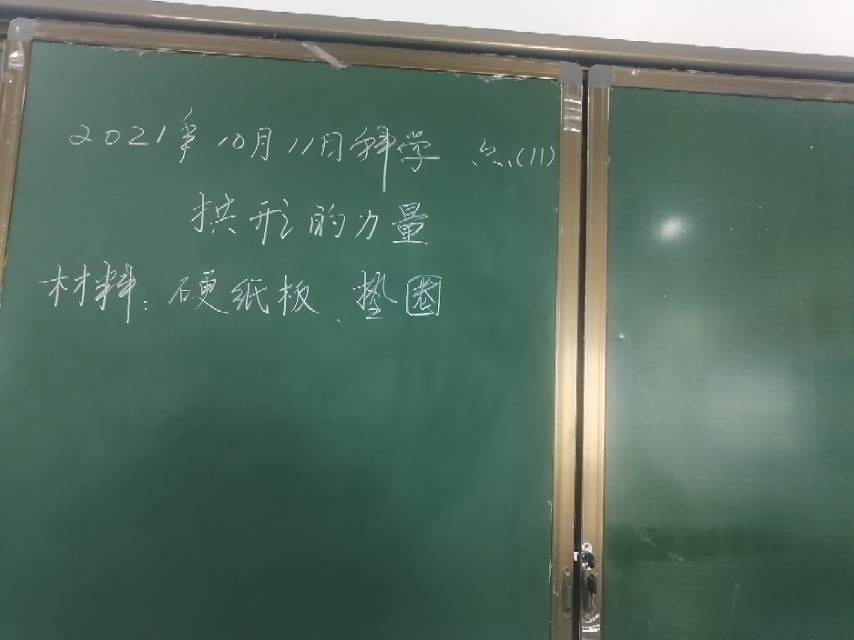 2021年10月11日科学 点(11)
拱形的力量
材料:硬纸板、垫圈